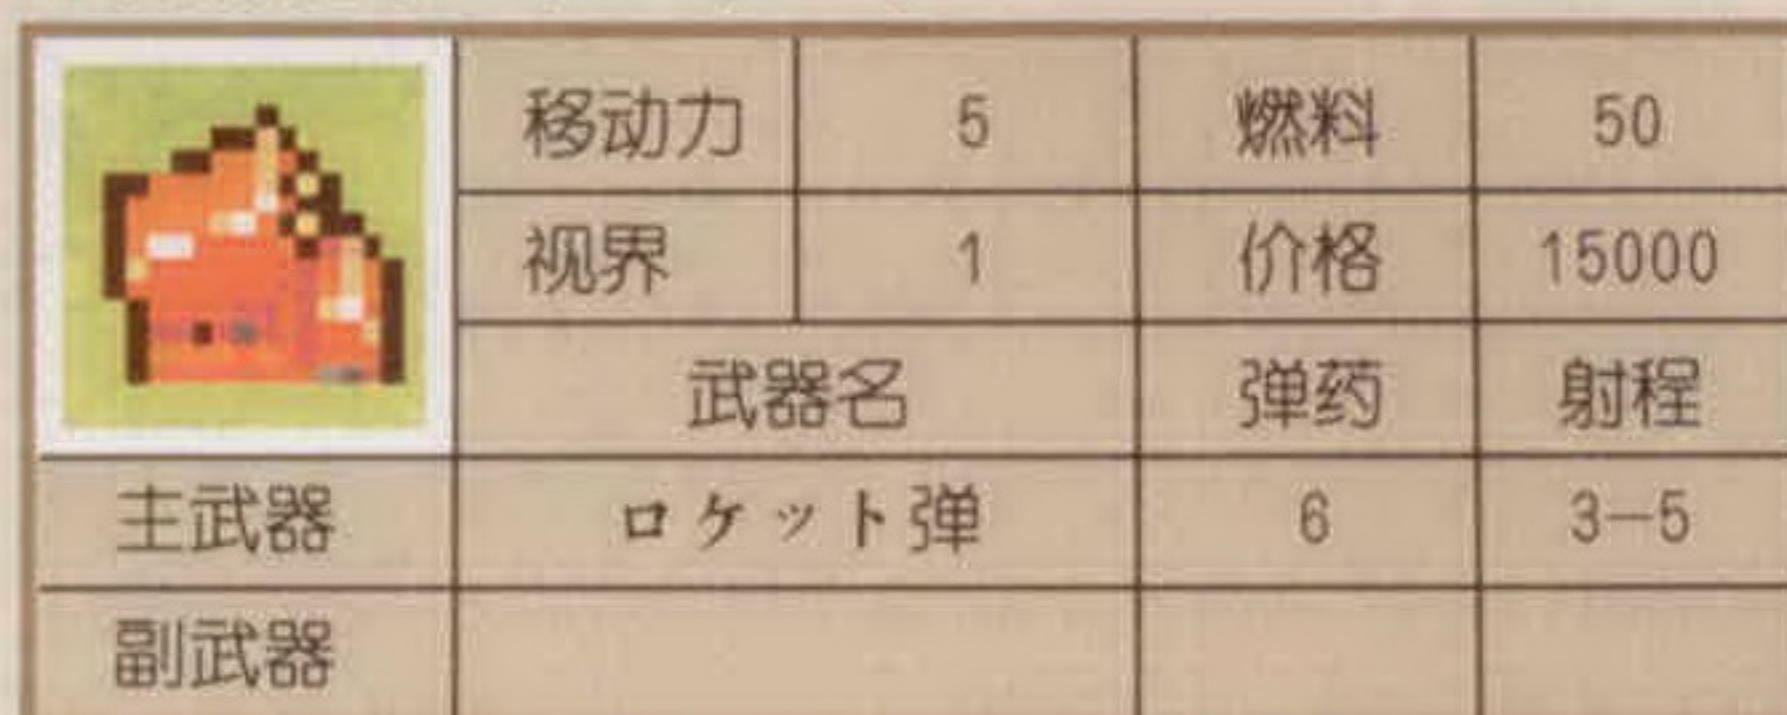 移动力 5 燃料 50
视界 1 价格 15000
武器名 弹药 射程
主武器 ロケット弹 6 3—5
副武器